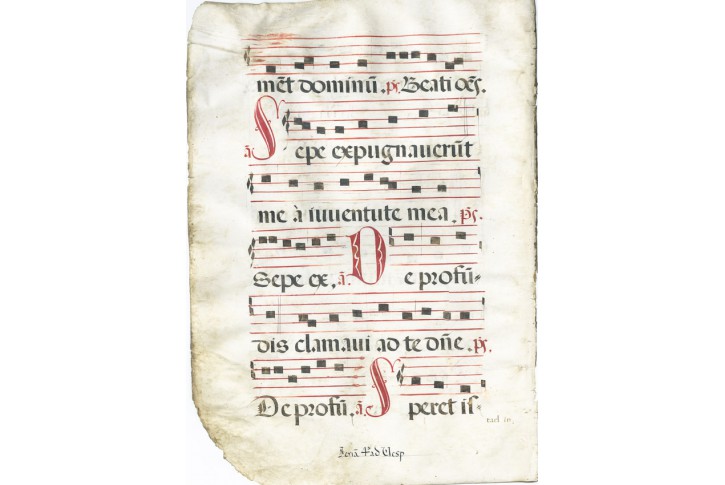 mẽt dominũ. p̃s. Beati oẽs.
ã Sepe expugnauerũt
me à iuuentute mea. p̃s.
Sepe ex. ã. De profũ-
dis clamaui ad te dñe. p̃s.
De profũ. ã. Speret is-
rael in
Feria 4ª ad Vesp